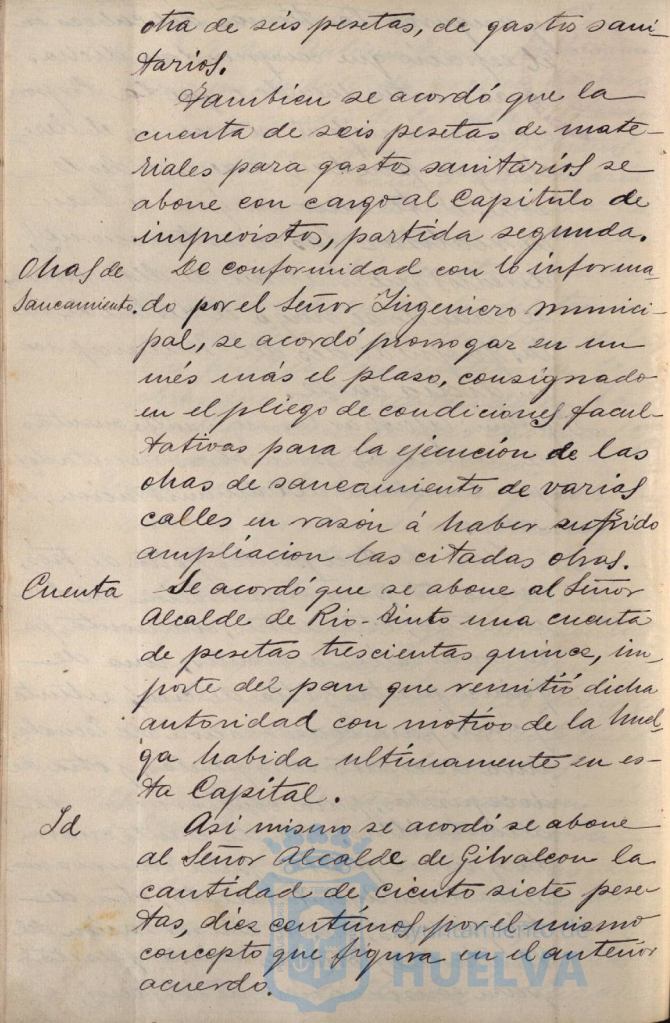 otra de seis pesetas, de gastos sani-
tarios.
Tambien se acordó que la
cuenta de seis pesetas de mate-
riales para gastos sanitarios se
abone con cargo al Capitulo de
imprevistos, partida segunda.
Obras de
Saneamiento.
De conformidad con lo informa-
do por el Señor Ingeniero munici-
pal, se acordó prorrogar en un
més más el plaso, consignado
en el pliego de condiciones facul-
tativas para la ejecución de las
obras de saneamiento de varias
calles en razón á haber sufrido
ampliacion las citadas obras.
Cuenta
Se acordó que se abone al Señor
Alcalde de Rio-Tinto una cuenta
de pesetas trescientas quince, im-
porte del pan que remitió dicha
autoridad con motivo de la huel-
ga habida ultimamente en es-
ta Capital.
Id
Asi mismo se acordó se abone
al Señor Alcalde de Gibraleon la
cantidad de ciento siete pese-
tas, diez centimos por el mismo
concepto que figura en el anterior
acuerdo.
Ayuntamiento de
HUELVA